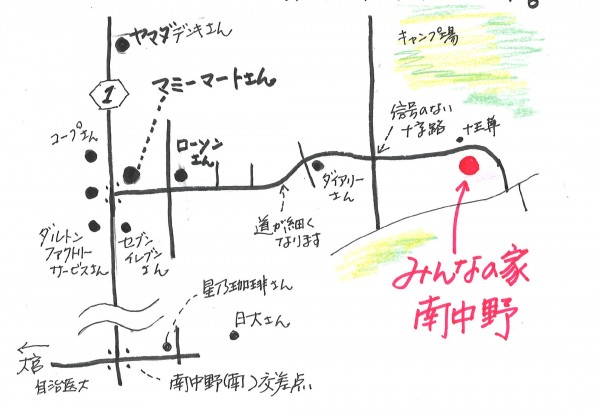 ヤマダデンキさん
キャンプ場
1
マミーマートさん
信号のない
十字路
コープさん
ローソン
さん
十王尊
ダイアリー
さん
道が細く
なります
ダルトン
ファクトリー
サービスさん
セブン
イレブン
さん
みんなの家
南中野
星乃珈琲さん
日大さん
大宮
自治医大
南中野(南)交差点